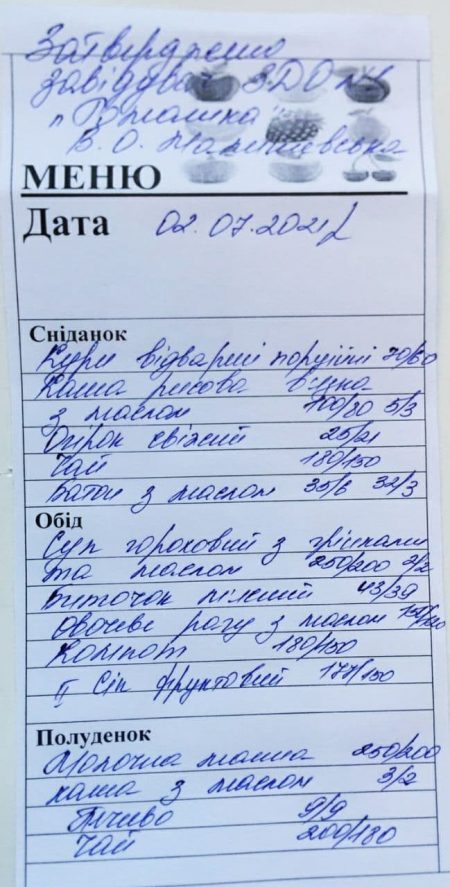 Затверджено
завідувач ЗДО №
"Ромашка"
В. О.
МЕНЮ
Дата 02.07.2021
Сніданок
Кури відварні порційні 70/60
Каша рисова в'язка
з маслом 100/80 5/3
Огірок свіжий 25/21
Чай 180/150
Батон з маслом 35/6 32/3
Обід
Суп гороховий з грінками
та маслом 250/200 3/2
Биточок 43/39
Овочеве рагу з маслом
Компот 180/150
ІІ Сік фруктовий 177/150
Полуденок
Молочна 250/200
каша з маслом 3/2
Печиво 9/9
Чай 200/180